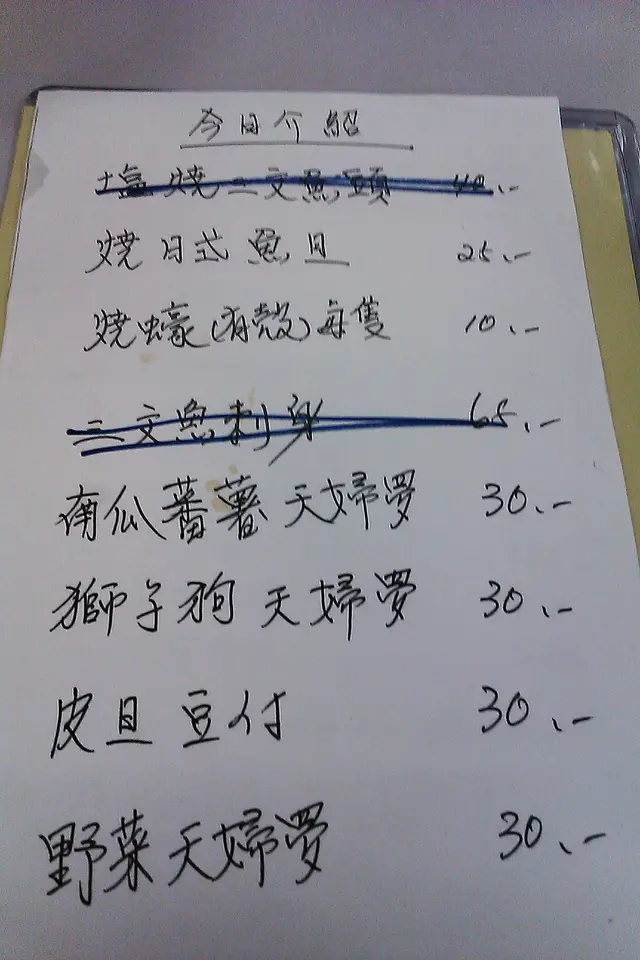 今日介紹
塩燒三文魚頭 40.-
燒日式魚旦 25.-
燒蠔(有殻)每隻 10.-
三文魚刺身 65.-
南瓜蕃薯天婦罗 30.-
獅子狗天婦罗 30.-
皮旦豆付 30.-
野菜天婦罗 30.-